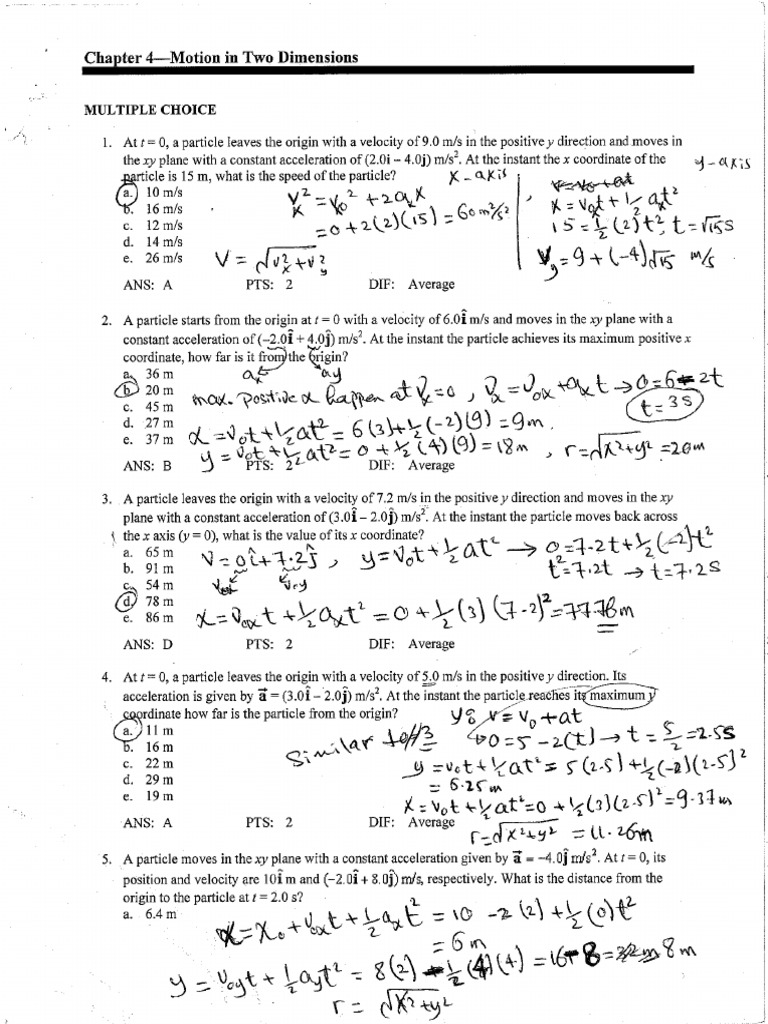 Chapter 4—Motion in Two Dimensions
MULTIPLE CHOICE
1. At t = 0, a particle leaves the origin with a velocity of 9.0 m/s in the positive y direction and moves in
the xy plane with a constant acceleration of (2.0i – 4.0j) m/s². At the instant the x coordinate of the
particle is 15 m, what is the speed of the particle?
x-axis
y-axis
a. 10 m/s
b. 16 m/s
c. 12 m/s
d. 14 m/s
e. 26 m/s
Vx² = Vx0² + 2axX
= 0+2(2)(15) = 60 m²/s²
V = √(Vx²+Vy²)
V=V0+at
x = V0xt + 1/2 axt²
15 = 1/2 (2) t², t = √15 s
Vy = 9 + (-4)√15 m/s
ANS: A PTS: 2 DIF: Average
2. A particle starts from the origin at t = 0 with a velocity of 6.0î m/s and moves in the xy plane with a
constant acceleration of (–2.0î + 4.0ĵ) m/s². At the instant the particle achieves its maximum positive x
coordinate, how far is it from the origin?
ax ay
a. 36 m
b. 20 m
c. 45 m
d. 27 m
e. 37 m
max. positive x happen at Vx=0, Vx = V0x+axt → 0=6-2t
t = 3s
x = V0t+1/2 at² = 6(3)+1/2(-2)(9) = 9m.
y = V0t + 1/2 at² = 0 + 1/2 (4)(9) = 18m, r=√x²+y² = 20m
ANS: B PTS: 2 DIF: Average
3. A particle leaves the origin with a velocity of 7.2 m/s in the positive y direction and moves in the xy
plane with a constant acceleration of (3.0î – 2.0ĵ) m/s². At the instant the particle moves back across
the x axis (y = 0), what is the value of its x coordinate?
a. 65 m
b. 91 m
c. 54 m
d. 78 m
e. 86 m
V = 0î+7.2ĵ, y=V0t+1/2 at² → 0=7.2t+1/2(-2)t²
t²=7.2t → t=7.2s
x = V0xt + 1/2 axt² = 0 + 1/2 (3) (7.2)² = 77.76m
ANS: D PTS: 2 DIF: Average
4. At t = 0, a particle leaves the origin with a velocity of 5.0 m/s in the positive y direction. Its
acceleration is given by a⃗ = (3.0î – 2.0ĵ) m/s². At the instant the particle reaches its maximum y
coordinate how far is the particle from the origin?
a. 11 m
b. 16 m
c. 22 m
d. 29 m
e. 19 m
Similar to #3
y: v = v0 +at
0=5-2(t) → t = 5/2 = 2.5s
y = v0t + 1/2 at² = 5(2.5) + 1/2 (-2)(2.5)²
= 6.25m
x = v0t + 1/2 at² = 0 + 1/2(3)(2.5)² = 9.37m
r=√x²+y² = 11.26m
ANS: A PTS: 2 DIF: Average
5. A particle moves in the xy plane with a constant acceleration given by a⃗ = –4.0ĵ m/s². At t = 0, its
position and velocity are 10î m and (–2.0î + 8.0ĵ) m/s, respectively. What is the distance from the
origin to the particle at t = 2.0 s?
a. 6.4 m
x = x0 + v0xt + 1/2 axt² = 10 -2(2) + 1/2 (0)t²
= 6m
y = v0yt + 1/2 ayt² = 8(2) - 1/2 (4)(4) = 16-8 = 8m
r = √x²+y²